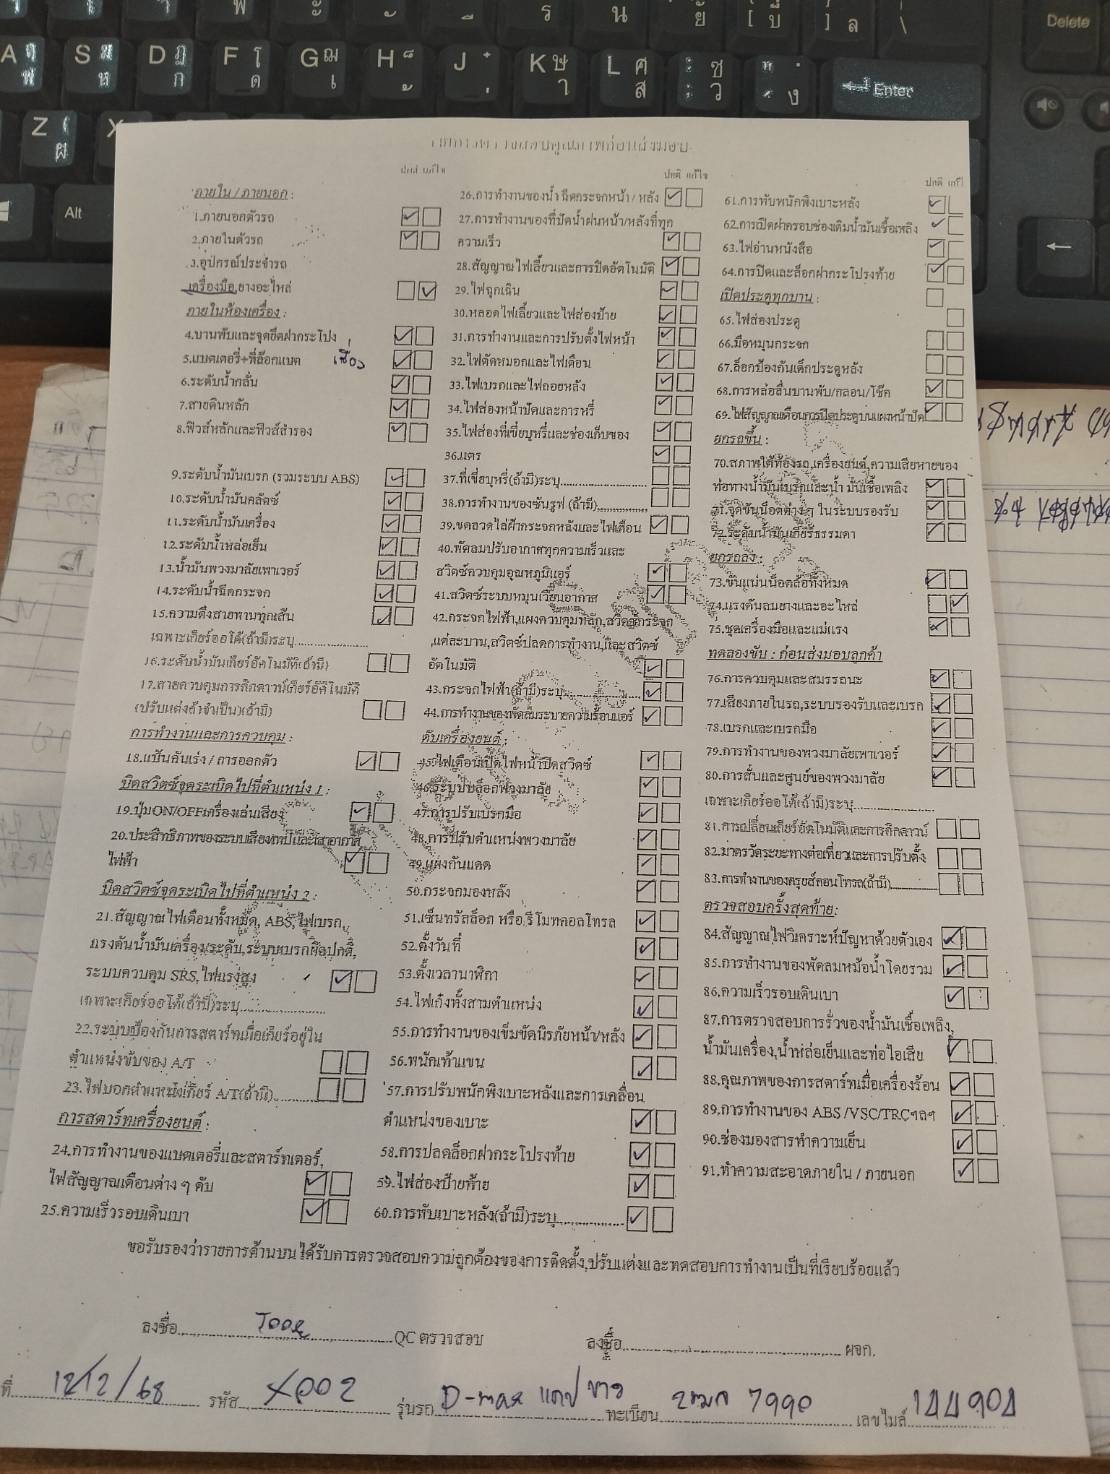 รายการตรวจสอบคุณภาพก่อนส่งมอบ
ปกติ แก้ไข
ภายใน / ภายนอก :
1.ภายนอกตัวรถ
2.ภายในตัวรถ
3.อุปกรณ์ประจำรถ
เครื่องมือ,ยางอะไหล่
ภายในห้องเครื่อง :
4.บานพับและจุดยึดฝากระโปง
5.แบตเตอรี่+ที่ล็อกแบต
6.ระดับน้ำกลั่น
7.สายดินหลัก
8.ฟิวส์หลักและฟิวส์สำรอง
9.ระดับน้ำมันเบรก (รวมระบบ ABS)
10.ระดับน้ำมันคลัตช์
11.ระดับน้ำมันเครื่อง
12.ระดับน้ำหล่อเย็น
13.น้ำมันพวงมาลัยเพาเวอร์
14.ระดับน้ำฉีดกระจก
15.ความตึงสายพานทุกเส้น
เฉพาะเกียร์ออโต้(ถ้ามี)ระบุ
16.ระดับน้ำมันเกียร์อัตโนมัติ(ถ้ามี)
17.สายควบคุมการคิกดาวน์เกียร์อัติโนมัติ
(ปรับแต่งถ้าจำเป็น)(ถ้ามี)
การทำงานและการควบคุม :
18.แป้นคันเร่ง / การออกตัว
บิดสวิตซ์จุดระเบิดไปที่ตำแหน่ง 1 :
19.ปุ่มON/OFFเครื่องเล่นเสียง
20.ประสิทธิภาพของระบบเสียงเทปและเสาอากาศ
ไฟฟ้า
บิดสวิตซ์จุดระเบิดไปที่ตำแหน่ง 2 :
21.สัญญาณไฟเตือนทั้งหมด, ABS, ไฟเบรก,
แรงดันน้ำมันเครื่อง,ระดับ,ระบบเบรกผิดปกติ,
ระบบควบคุม SRS, ไฟแรงสูง
เฉพาะเกียร์ออโต้(ถ้ามี)ระบุ
22.ระบบป้องกันการสตาร์ทเมื่อเกียร์อยู่ใน
ตำแหน่งขับของ A/T
23.ไฟบอกตำแหน่งเกียร์ A/T(ถ้ามี)
การสตาร์ทเครื่องยนต์ :
24.การทำงานของแบตเตอรี่และสตาร์ทเตอร์,
ไฟสัญญาณเตือนต่าง ๆ ดับ
25.ความเร็วรอบเดินเบา
ปกติ แก้ไข
26.การทำงานของน้ำฉีดกระจกหน้า / หลัง
27.การทำงานของที่ปัดน้ำฝนหน้า/หลังที่ทุก
ความเร็ว
28.สัญญาณไฟเลี้ยวและการปิดอัตโนมัติ
29.ไฟฉุกเฉิน
30.หลอดไฟเลี้ยวและไฟส่องป้าย
31.การทำงานและการปรับตั้งไฟหน้า
32.ไฟตัดหมอกและไฟเตือน
33.ไฟเบรกและไฟถอยหลัง
34.ไฟส่องหน้าปัดและการหรี่
35.ไฟส่องที่เขี่ยบุหรี่และช่องเก็บของ
36.แตร
37.ที่เขี่ยบุหรี่(ถ้ามี)ระบุ
38.การทำงานของซันรูฟ (ถ้ามี)
39.ขดลวดไล่ฝ้ากระจกหลังและไฟเตือน
40.พัดลมปรับอากาศทุกความเร็วและ
สวิตซ์ควบคุมอุณหภูมิแอร์
41.สวิตซ์ระบบหมุนเวียนอากาศ
42.กระจกไฟฟ้า,แผงควบคุมหลัก,สวิตซ์กระจก
,แต่ละบาน,สวิตซ์ปลดการทำงาน,และสวิตซ์
อัตโนมัติ
43.กระจกไฟฟ้า(ถ้ามี)ระบุ
44.การทำงานของพัดลมระบายความร้อนแอร์
ดับเครื่องยนต์ :
45.ไฟเตือนเปิดไฟหน้าปิดสวิตซ์
46.ระบบปลล็อกพวงมาลัย
47.การปรับเบรกมือ
48.การปรับตำแหน่งพวงมาลัย
49.แผงกันแดด
50.กระจกมองหลัง
51.เซ็นทรัลล็อก หรือ,รีโมทคอลโทรล
52.ตั้งวันที่
53.ตั้งเวลานาฬิกา
54.ไฟเก๋งทั้งสามตำแหน่ง
55.การทำงานของเข็มขัดนิรภัยหน้า/หลัง
56.พนักเท้าแขน
57.การปรับพนักพิงเบาะหลังและการเคลื่อน
ตำแหน่งของเบาะ
58.การปลดล็อกฝากระโปรงท้าย
59.ไฟส่องป้ายท้าย
60.การพับเบาะหลัง(ถ้ามี)ระบุ
ปกติ
61.การพับพนักพิงเบาะหลัง
62.การเปิดฝาครอบช่องเติมน้ำมันเชื้อเพลิง
63.ไฟอ่านหนังสือ
64.การปิดและล็อกฝากระโปรงท้าย
เปิดประตูทุกบาน :
65.ไฟส่องประตู
66.มือหมุนกระจก
67.ล็อกป้องกันเด็กประตูหลัง
68.การหล่อลื่นบานพับ/กลอน/โช๊ค
69.ไฟสัญญาณเตือนการเปิดประตูบนแผงหน้าปัด
ยกรถขึ้น :
70.สภาพใต้ท้องรถ,เครื่องยนต์,ความเสียหายของ
ท่อทางน้ำมันเบรกและน้ำมันเชื้อเพลิง
71.จุดขันน็อตต่าง ๆ ในระบบรองรับ
72.ระดับน้ำมันเกียร์ธรรมดา
ยกรถลง :
73.ขันแน่นน็อตล้อทั้งหมด
74.แรงดันลมยางและอะไหล่
75.ชุดเครื่องมือและแม่แรง
ทดลองขับ : ก่อนส่งมอบลูกค้า
76.การควบคุมและสมรรถนะ
77.เสียงภายในรถ,ระบบรองรับและเบรค
78.เบรกและเบรกมือ
79.การทำงานของพวงมาลัยเพาเวอร์
80.การสั่นและศูนย์ของพวงมาลัย
เฉพาะเกียร์ออโต้(ถ้ามี)ระบุ
81.การเปลี่ยนเกียร์อัตโนมัติและการคิกดาวน์
82.มาตรวัดระยะทางต่อเที่ยวและการปรับตั้ง
83.การทำงานของครุยส์คอนโทรล(ถ้ามี)
ตรวจสอบครั้งสุดท้าย:
84.สัญญาณไฟวิเคราะห์ปัญหาด้วยตัวเอง
85.การทำงานของพัดลมหม้อน้ำโดยรวม
86.ความเร็วรอบเดินเบา
87.การตรวจสอบการรั่วของน้ำมันเชื้อเพลิง,
น้ำมันเครื่อง,น้ำหล่อเย็นและท่อไอเสีย
88.คุณภาพของการสตาร์ทเมื่อเครื่องร้อน
89.การทำงานของ ABS /VSC/TRCฯลฯ
90.ช่องมองสารทำความเย็น
91.ทำความสะอาดภายใน / ภายนอก
ขอรับรองว่ารายการด้านบน ได้รับการตรวจสอบความถูกต้องของการติดตั้ง,ปรับแต่งและทดสอบการทำงานเป็นที่เรียบร้อยแล้ว
ลงชื่อ QC ตรวจสอบ ลงชื่อ ผจก.
ที่ 12/12/68 รหัส X002 รุ่นรถ D-max แคป ขาว ทะเบียน 7990 เลขไมล์ 144904
Delete
Enter
Alt